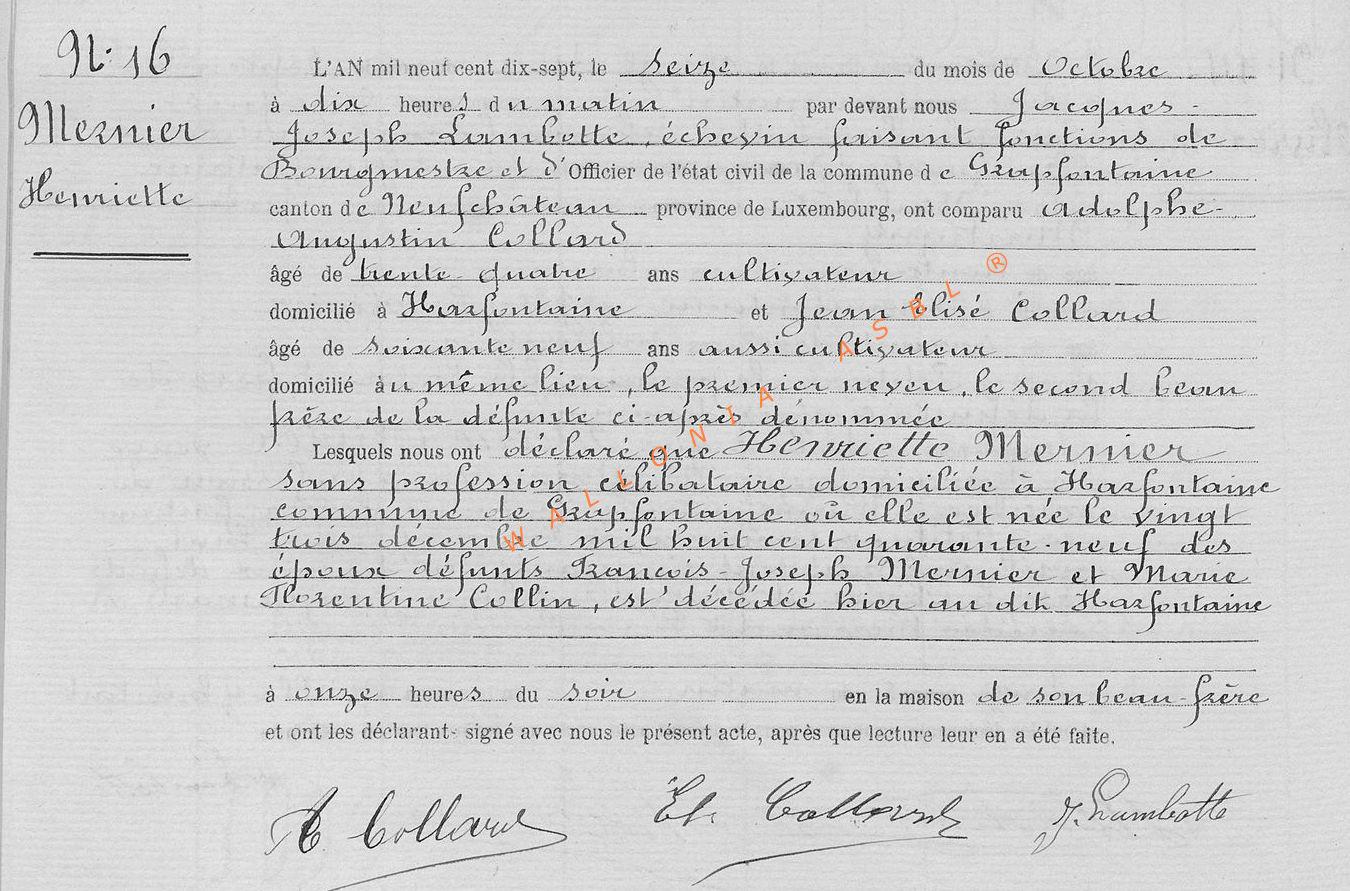 N: 16
Mernier
Henriette
L'AN mil neuf cent dix-sept, le seize du mois de Octobre
à dix heures du matin par devant nous Jacques-
Joseph Lambotte, échevin faisant fonctions de
Bourgmestre et d'Officier de l'état civil de la commune de Grapfontaine
canton de Neufchâteau province de Luxembourg, ont comparu Adolphe-
Augustin Collard
âgé de trente quatre ans cultivateur
domicilié à Harfontaine et Jean Elisé Collard
âgé de soixante neuf ans aussi cultivateur
domicilié au même lieu, le premier neveu, le second beau
frère de la défunte ci-après dénommée
Lesquels nous ont déclaré que Henriette Mernier
sans profession célibataire domiciliée à Harfontaine
commune de Grapfontaine où elle est née le vingt
trois décembre mil huit cent quarante-neuf des
époux défunts François-Joseph Mernier et Marie
Florentine Collin, est décédée hier au dit Harfontaine
à onze heures du soir en la maison de son beau-frère
et ont les déclarant- signé avec nous le présent acte, après que lecture leur en a été faite.
A Collard El. Collard J. Lambotte
WALLONIA ASBL ®